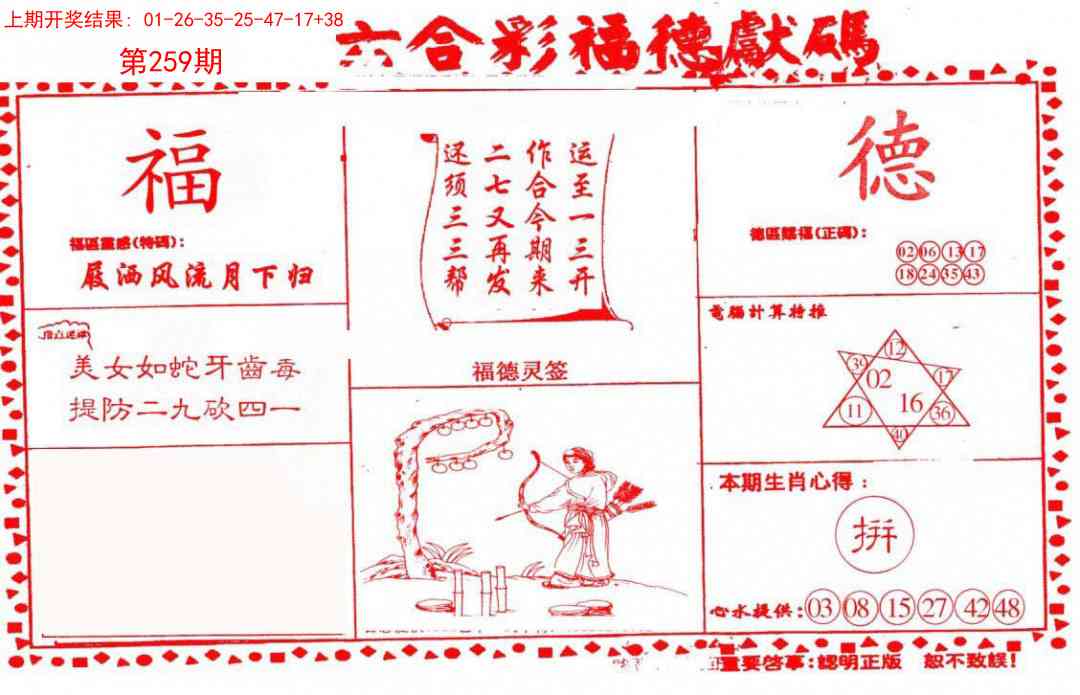 上期开奖结果：01-26-35-25-47-17+38
第259期
六合彩福德獻碼
福
福區靈感(特碼)：
屐洒风流月下归
美女如蛇牙齒毒
提防二九砍四一
运至一三开
作合今期来
二七又再发
还须三三帮
福德灵签
德
德區賜福(正碼)：
02 06 13 17
18 24 35 43
電腦計算特推
12
39 02 17
11 16 36
40
本期生肖心得：
拼
心水提供：03 08 15 27 42 48
重要啓事：認明正版 恕不致誤！